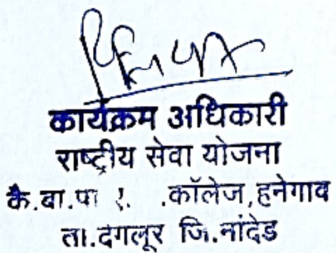 कार्यक्रम अधिकारी
राष्ट्रीय सेवा योजना
कै.बा.पा .कॉलेज,हनेगाव
ता.दगलूर जि.नांदेड